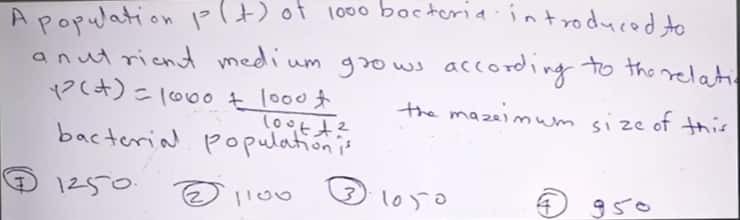 A population p(t) of 1000 bacteria introduced to
a nutrient medium grows according to the relatio
p(t) = 1000 + 1000t / 100+t² the mazeimum size of this
bacterial population is
① 1250. ② 1100 ③ 1050 ④ 950